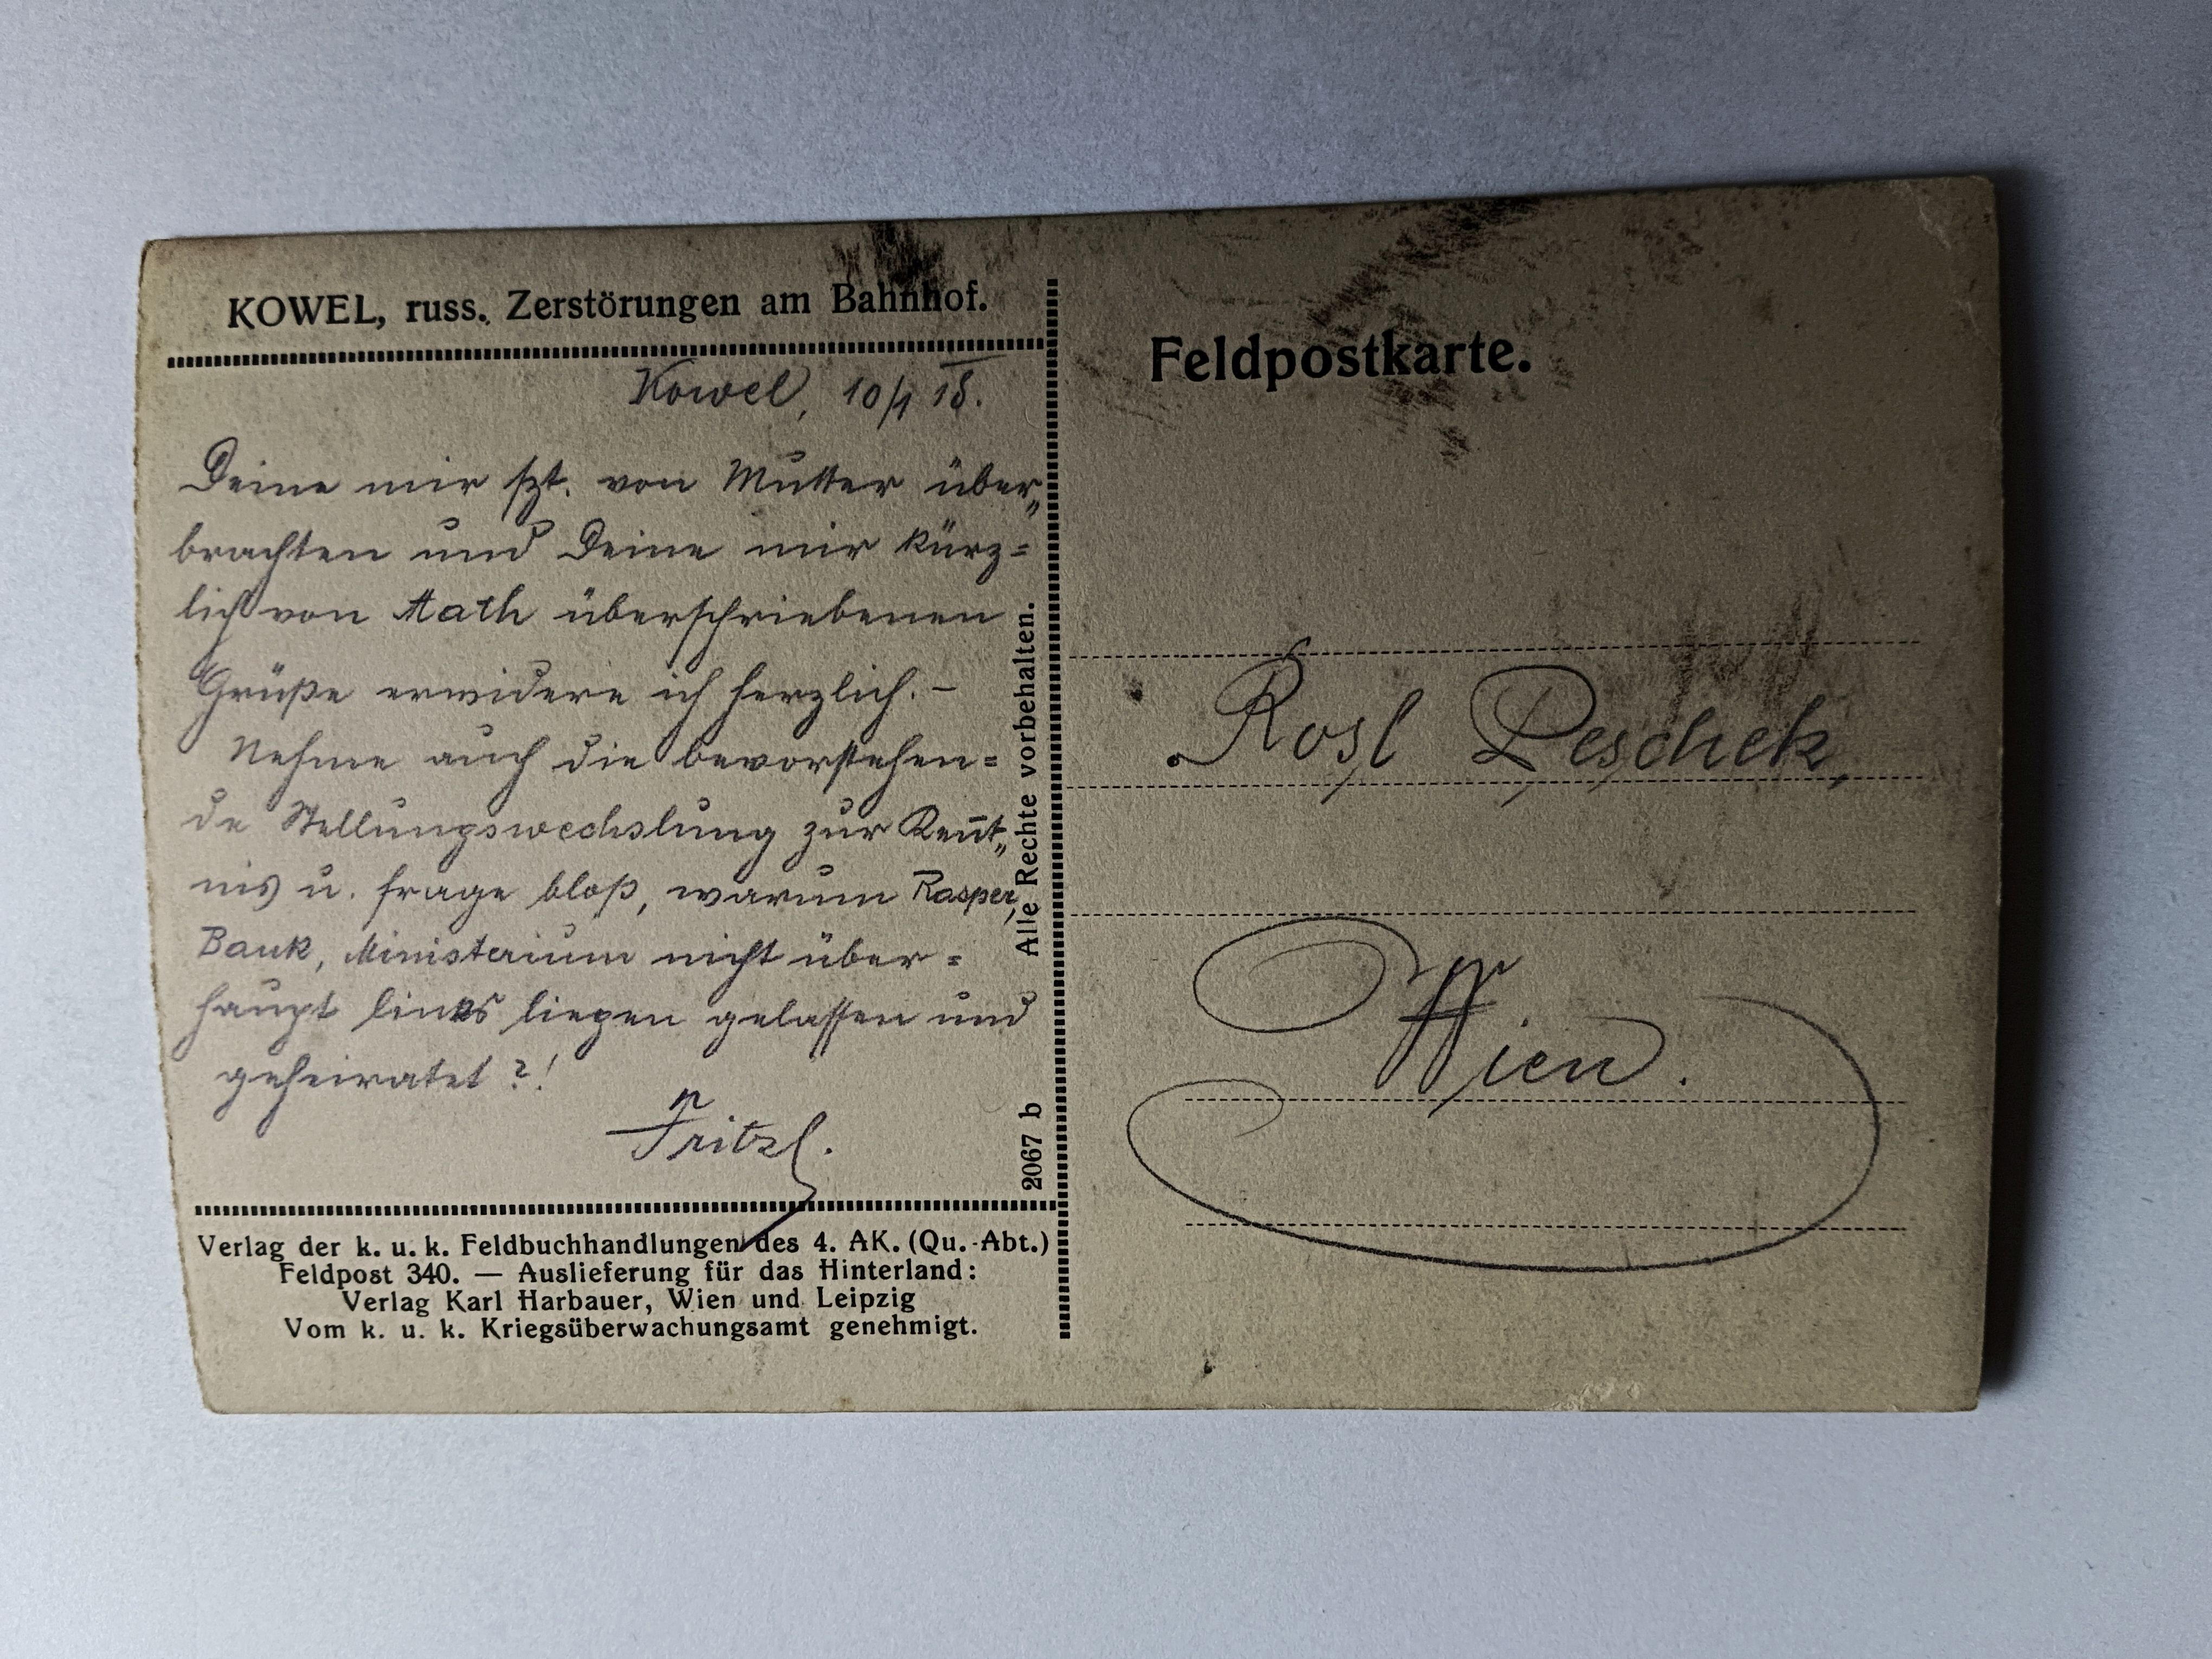 KOWEL, russ. Zerstörungen am Bahnhof.
Kowel, 10/1 18.
Deine mir szt. von Mutter über„
brachten und Deine mir kürz=
lich von Math überschriebenen
Grüße erwidere ich herzlich. –
Nehme auch die bevorstehen=
de Stellungswechslung zur Kent̅„
nis u. frage bloß, warum Kasper,
Bank, Ministerium nicht über=
haupt links liegen gelassen und
geheiratet ?!
Fritzl.
Verlag der k. u. k. Feldbuchhandlungen des 4. AK. (Qu.-Abt.)
Feldpost 340. — Auslieferung für das Hinterland:
Verlag Karl Harbauer, Wien und Leipzig
Vom k. u. k. Kriegsüberwachungsamt genehmigt.
2067 b Alle Rechte vorbehalten.
Feldpostkarte.
Rosl Peschek,
Wien.